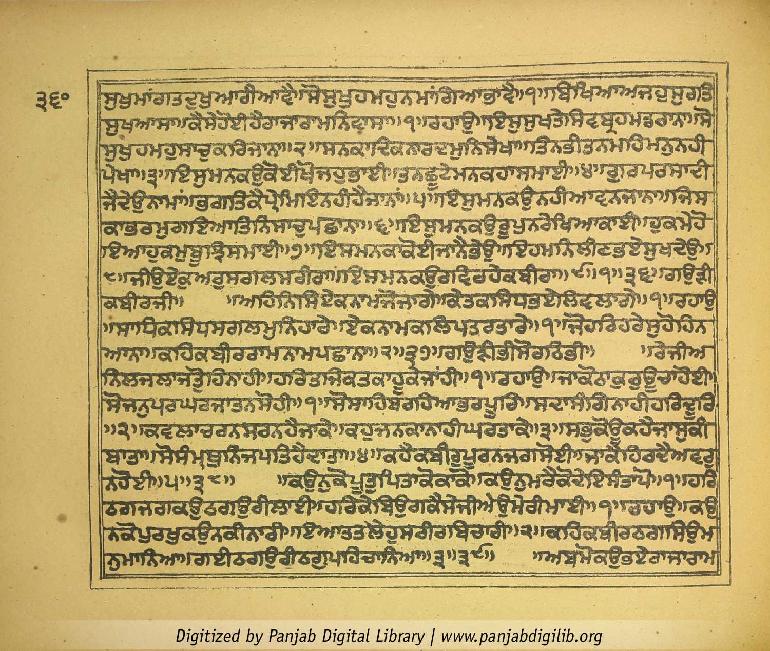 ੩੬੦
ਸੁਖੁਮਾਂਗਤਦੁਖੁਆਗੀਆਵੈ॥ਸੋਸੁਖੁਹਮਹੁਨਮਾਂਗਿਆਭਾਵੈ॥੧॥ਬਿਖਿਆਅਜਹੁਸੁਰਤਿ
ਸੁਖਆਸਾ॥ਕੈਸੇਹੋਈਹੈਰਾਜਾਰਾਮਨਿਵਾਸਾ॥੧॥ਰਹਾਉ॥ਇਸੁਸੁਖਤੇਸਿਵਬ੍ਰਹਮਡਰਾਨਾ॥ਸੋ
ਸੁਖੁਹਮਹੁਸਾਚੁਕਰਿਜਾਨਾ॥੨॥ਸਨਕਾਦਿਕਨਾਰਦਮੁਨਿਸੇਖਾ॥ਤਿਨਭੀਤਨਮਹਿਮਨੁਨਹੀ
ਪੇਖਾ॥੩॥ਇਸੁਮਨਕਉਕੋਈਖੋਜਹੁਭਾਈ॥ਤਨਛੂਟੇਮਨਕਹਾਸਮਾਈ॥੪॥ਗੁਰਪਰਸਾਦੀ
ਜੈਦੇਉਨਾਮਾਂ॥ਭਗਤਿਕੈਪ੍ਰੇਮਿਇਨਹੀਹੈਜਾਨਾਂ॥੫॥ਇਸੁਮਨਕਉਨਹੀਆਵਨਜਾਨਾ॥ਜਿਸ
ਕਾਭਰਮੁਗਇਆਤਿਨਿਸਾਚੁਪਛਾਨਾ॥੬॥ਇਸੁਮਨਕਉਰੂਪੁਨਰੇਖਿਆਕਾਈ॥ਹੁਕਮੇਹੋ
ਇਆਹੁਕਮੁਬੂਝਿਸਮਾਈ॥੭॥ਇਸਮਨਕਾਕੋਈਜਾਨੈਭੇਉ॥ਇਹਮਨਿਲੀਣਭਏਸੁਖਦੇਉ॥
੮॥ਜੀਉਏਕੁਅਰੁਸਗਲਸਰੀਰਾ॥ਇਸਮਨਕਉਰਵਿਰਹੇਕਬੀਰਾ॥੯॥੧॥੩੬॥ਗਉੜੀ
ਕਬੀਰਜੀ॥ ॥ਅਹਿਨਿਸਿਏਕਨਾਮਜੋਜਾਗੇ॥ਕੇਤਕਸਿਧਭਏਲਿਵਲਾਗੇ॥੧॥ਰਹਾਉ
॥ਸਾਧਿਕਸਿਧਸਗਲਮੁਨਿਹਾਰੇ॥ਏਕਨਾਮਕਲਿਪਤਰਤਾਰੇ॥੧॥ਜੋਹਰਿਹਰੇਸੁਹੋਹਿਨ
ਆਨਾ॥ਕਹਿਕਬੀਰਰਾਮਨਾਮਪਛਾਨਾ॥੨॥੩੭॥ਗਉੜੀਭੀਸੋਰਠਿਭੀ॥ ॥ਰੇਜੀਅ
ਨਿਲਜਲਾਜਤੋੁਹਿਨਾਹੀ॥ਹਰਿਤਜਿਕਤਕਾਹੂਕੇਜਾਂਹੀ॥੧॥ਰਹਾਉ॥ਜਾਕੋਠਾਕੁਰੁਊਚਾਹੋਈ
ਸੋਜਨੁਪਰਘਰਜਾਤਨਸੋਹੀ॥੧॥ਸੋਸਾਹਿਬੁਰਹਿਆਭਰਪੂਰਿ॥ਸਦਾਸੰਗਿਨਾਹੀਹਰਿਦੂਰਿ
॥੨॥ਕਵਲਾਚਰਨਸਰਨਹੈਜਾਕੇ॥ਕਹੁਜਨਕਾਨਾਹੀਘਰਤਾਕੇ॥੩॥ਸਭੁਕੋਊਕਹੈਜਾਸੁਕੀ
ਬਾਤਾ॥ਸੋਸੰਮ੍ਰਥੁਨਿਜਪਤਿਹੈਦਾਤਾ॥੪॥ਕਹੈਕਬੀਰੁਪੂਰਨਜਗਸੋਈ॥ਜਾਕੇਹਿਰਦੈਅਵਰੁ
ਨਹੋਈ॥੫॥੩੮॥ ॥ਕਉਨੁਕੋਪੂਤੁਪਿਤਾਕੋਕਾਕੋ॥ਕਉਨੁਮਰੈਕੋਦੇਇਸੰਤਾਪੋ॥੧॥ਹਰਿ
ਠਗਜਗਕਉਠਗਉਰੀਲਾਈ॥ਹਰਿਕੇਬਿਓਗਕੈਸੇਜੀਅਉਮੇਰੀਮਾਈ॥੧॥ਰਹਾਉ॥ਕਉ
ਨਕੋਪੁਰਖੁਕਉਨਕੀਨਾਰੀ॥ਇਆਤਤਲੇਹੁਸਰੀਰਬਿਚਾਰੀ॥੨॥ਕਹਿਕਬੀਰਠਗਸਿਉਮ
ਨੁਮਾਨਿਆ॥ਗਈਠਗਉਰੀਠਗੁਪਹਿਚਾਨਿਆ॥੩॥੩੯॥ ॥ਅਬਮੋਕਉਭਏਰਾਜਾਰਾਮ
Digitized by Panjab Digital Library | www.panjabdigilib.org